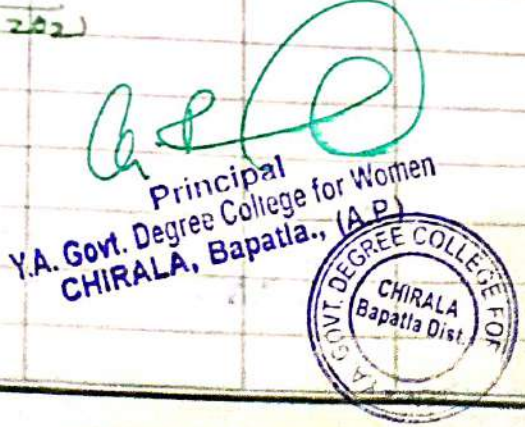 Principal
Y.A. Govt. Degree College for Women
CHIRALA, Bapatla., (A.P)
GOVT. DEGREE COLLEGE FOR
CHIRALA
Bapatla Dist.